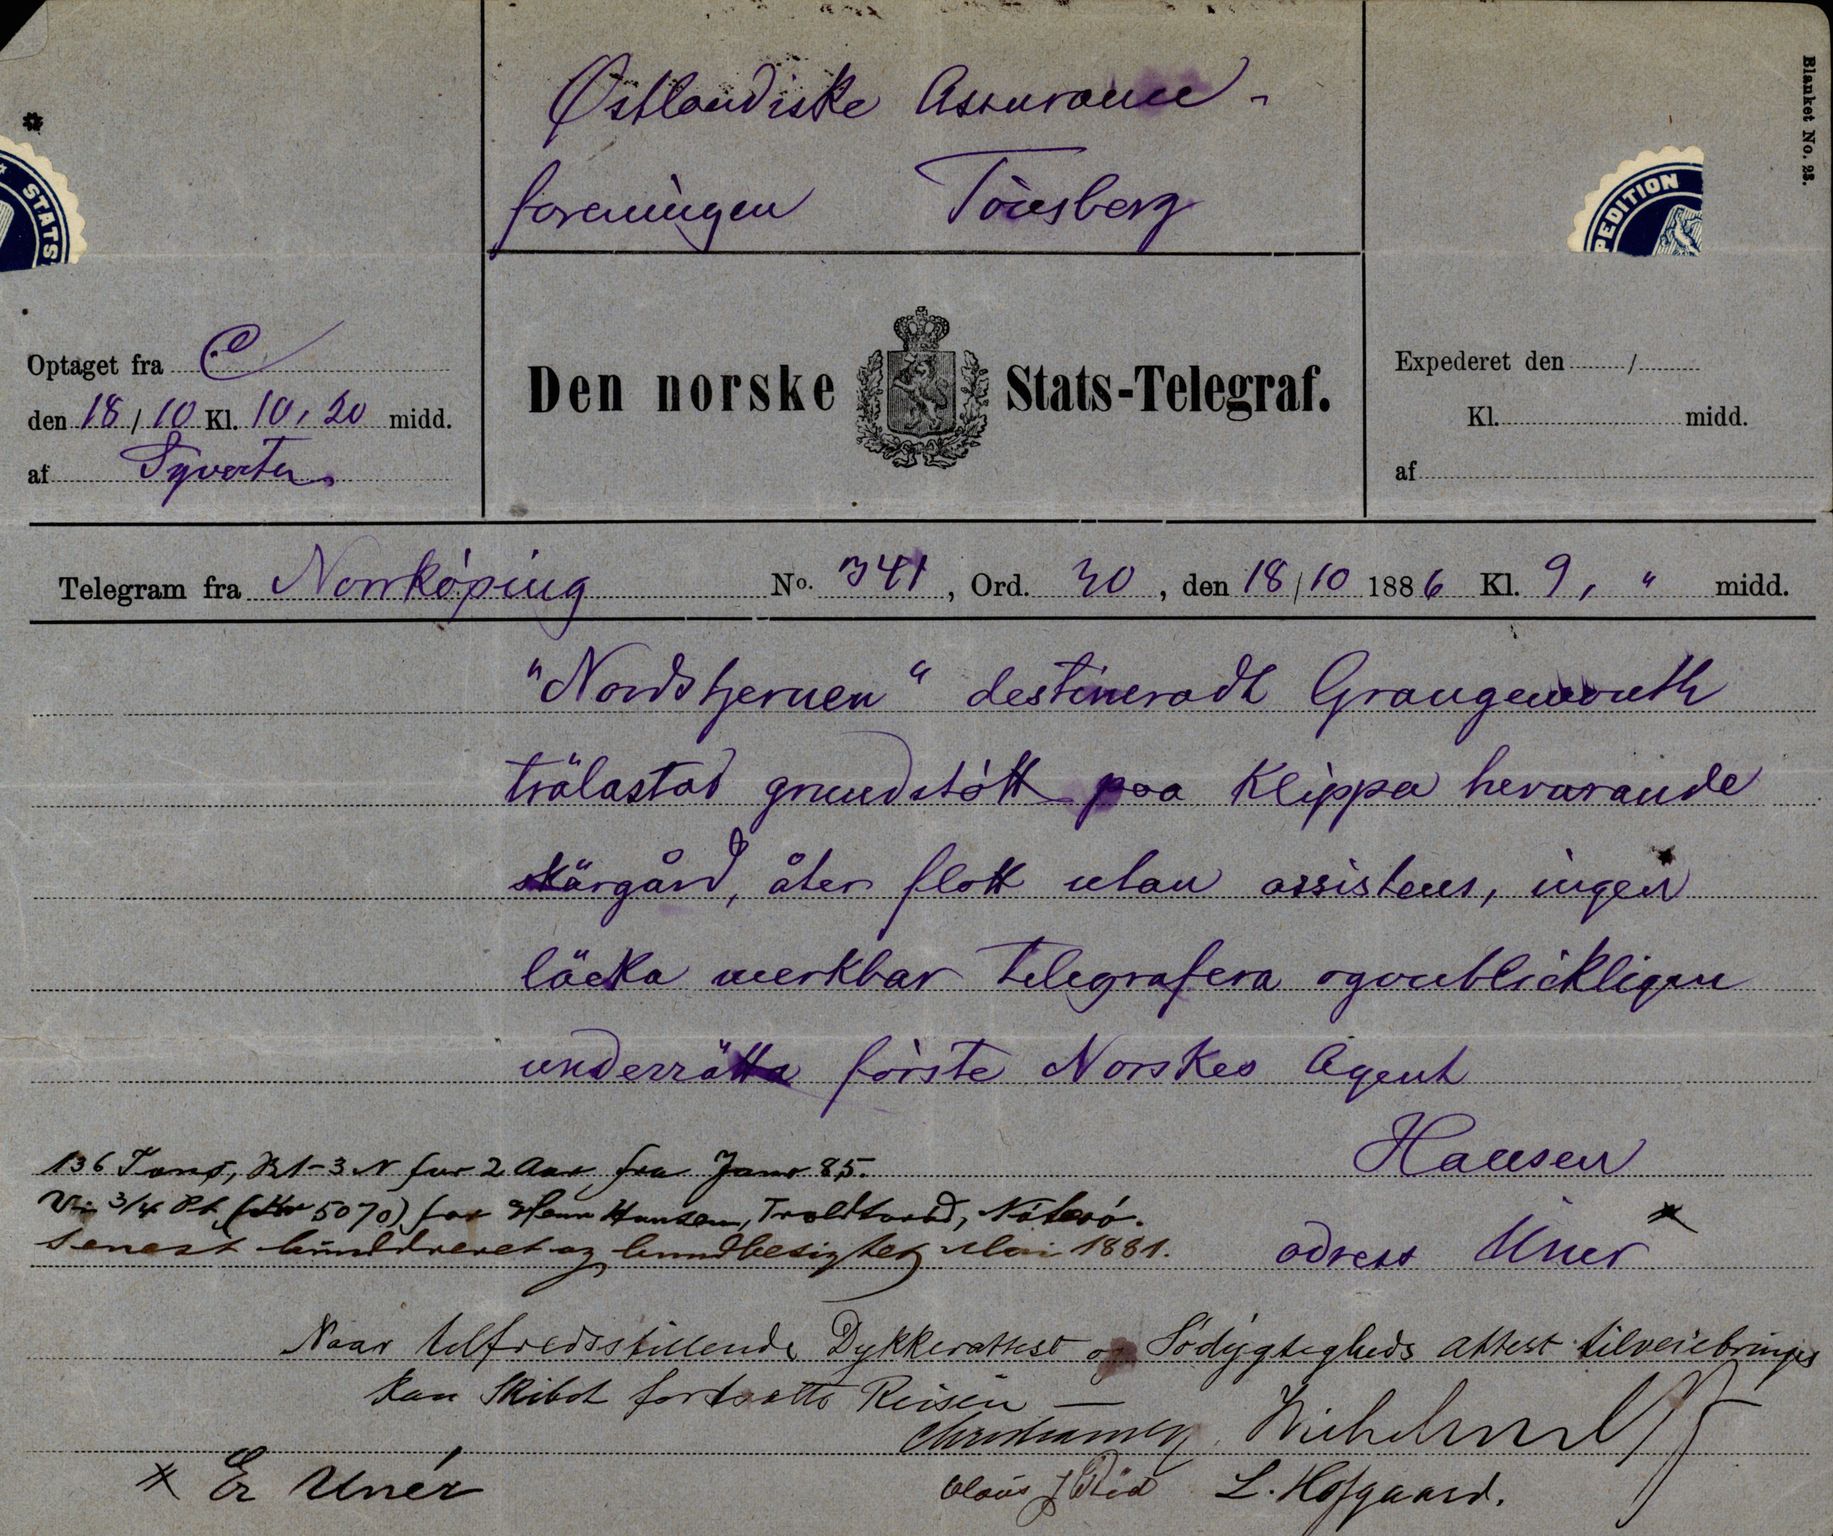 Østlandiske Assurance-
foreningen Tönsberg
Blanket No. 25.
* STATS
PEDITION
Optaget fra C
den 18/10 Kl. 10,20 midd.
af Syverten
Den norske Stats-Telegraf.
Expederet den / 
Kl. midd.
af
Telegram fra Norrköping No. 341, Ord. 30, den 18/10 1886 Kl. 9, " midd.
"Nordstjernen" destineradt Grangemouth
trälastad grundstött paa Klippa hervarande
skärgård, åter flott utan assistens, ingen
läcka merkbar telegrafera ogonblickligen
underrätta förste Norskes Agent
Hansen
136 Tons, B1-3 N for 2 Aar fra Janr 85.
3/4 Pt (Kr 5070) for Henr Hansen, Nöterö.
Senest bunddrevet og bundbesigtet Mai 1881.
adress Uner *
Naar tilfredsstillende Dykkerattest og Södygtigheds attest tilveiebringes
kan Skibet fortsætte Reisen —
* Er Unér
Olaus J Röd L. Hofgaard.